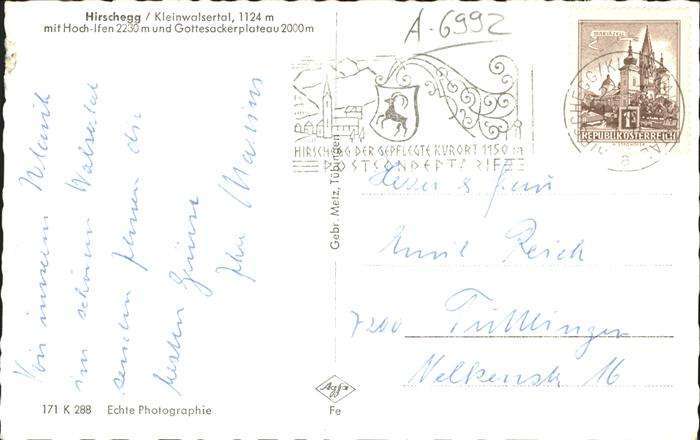 Hirschegg / Kleinwalsertal, 1124 m
mit Hoch-Ifen 2230 m und Gottesackerplateau 2000 m
A-6992
MARIAZELL
1S
REPUBLIK ÖSTERREICH
HIRSCHEGG DER GEPFLEGTE KURORT 1150 m
Von unserem Urlaub
im schönen Walsertal
senden Ihnen die
besten Grüsse
Ihre
Gebr. Metz, Tübingen
Herr u Frau
Emil Reich
7200 Tuttlingen
Nelkenstr 16
Agfa
171 K 288 Echte Photographie
Fe